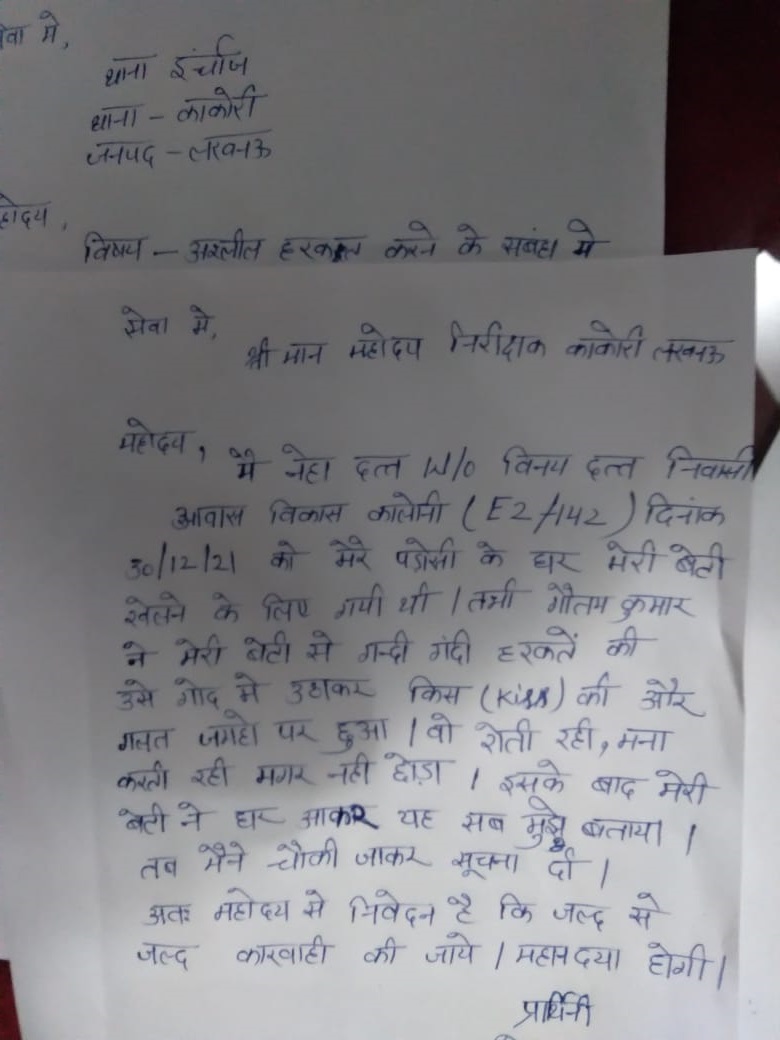 सेवा में,
थाना इंचार्ज
थाना - काकोरी
जनपद - लखनऊ
महोदय,
विषय - अश्लील हरकत करने के सबंध में
सेवा में,
श्री मान महोदय निरीक्षक काकोरी लखनऊ
महोदय,
मै नेहा दत्त W/o विनय दत्त निवासी
आवास विकास कालोनी (E2/142) दिनांक
30/12/21 को मेरे पडोसी के घर मेरी बेटी
खेलने के लिए गयी थी । तभी गौतम कुमार
ने मेरी बेटी से गन्दी गंदी हरकतें की
उसे गोद मे उठाकर किस (Kiss) की और
गलत जगहो पर छुआ । वो रोती रही, मना
करती रही मगर नही छोड़ा । इसके बाद मेरी
बेटी ने घर आकर यह सब मुझे बताया ।
तब मैने चौकी जाकर सूचना दी ।
अतः महोदय से निवेदन है कि जल्द से
जल्द कारवाही की जाये । महान दया होगी ।
प्रार्थिनी